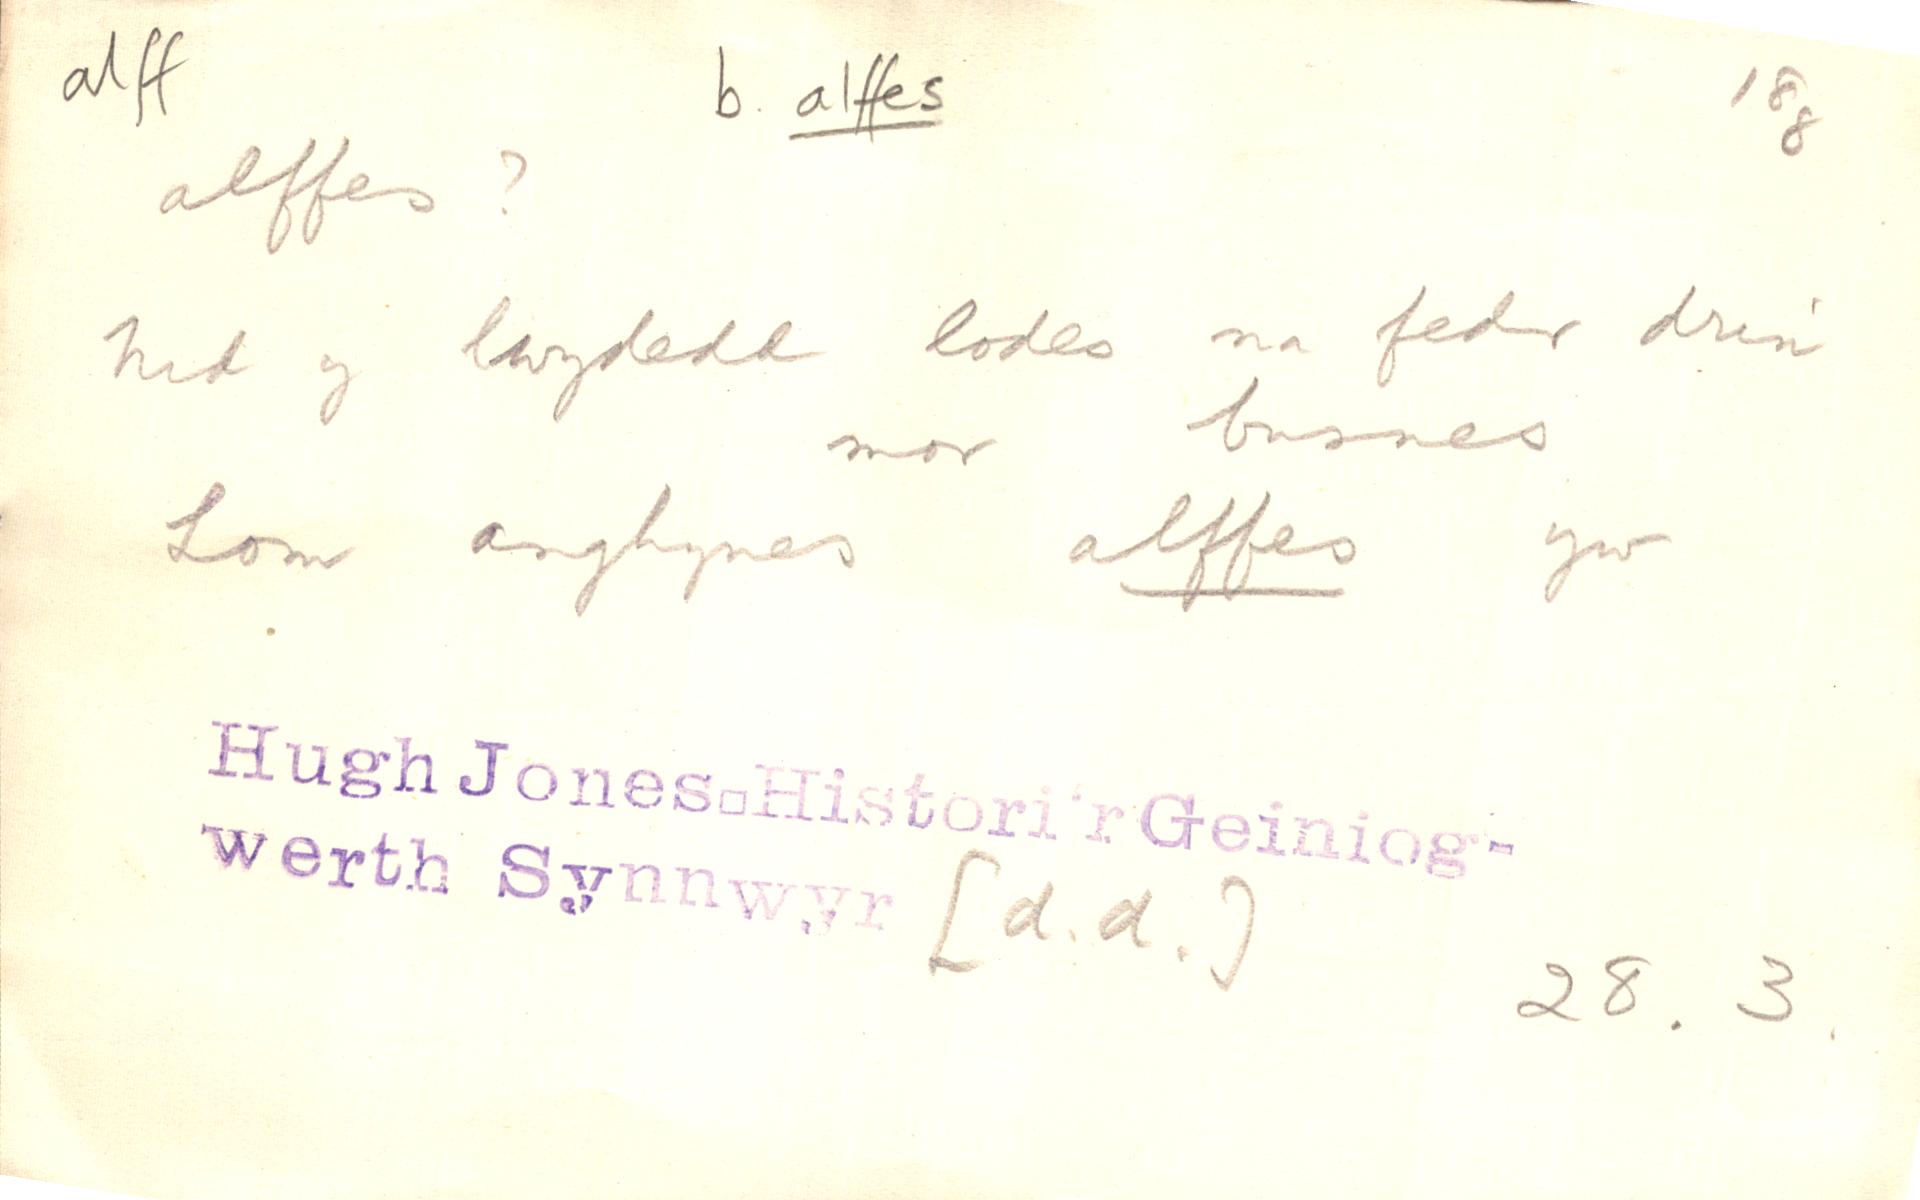 alff b. alffes 18g
alffes ?
Nid y lwydedd lodes na fedr drin
mor busnes
Lom anghynes alffes yw
Hugh Jones. Histori'r Geiniog-
werth Synnwyr [d.d.]
28. 3.